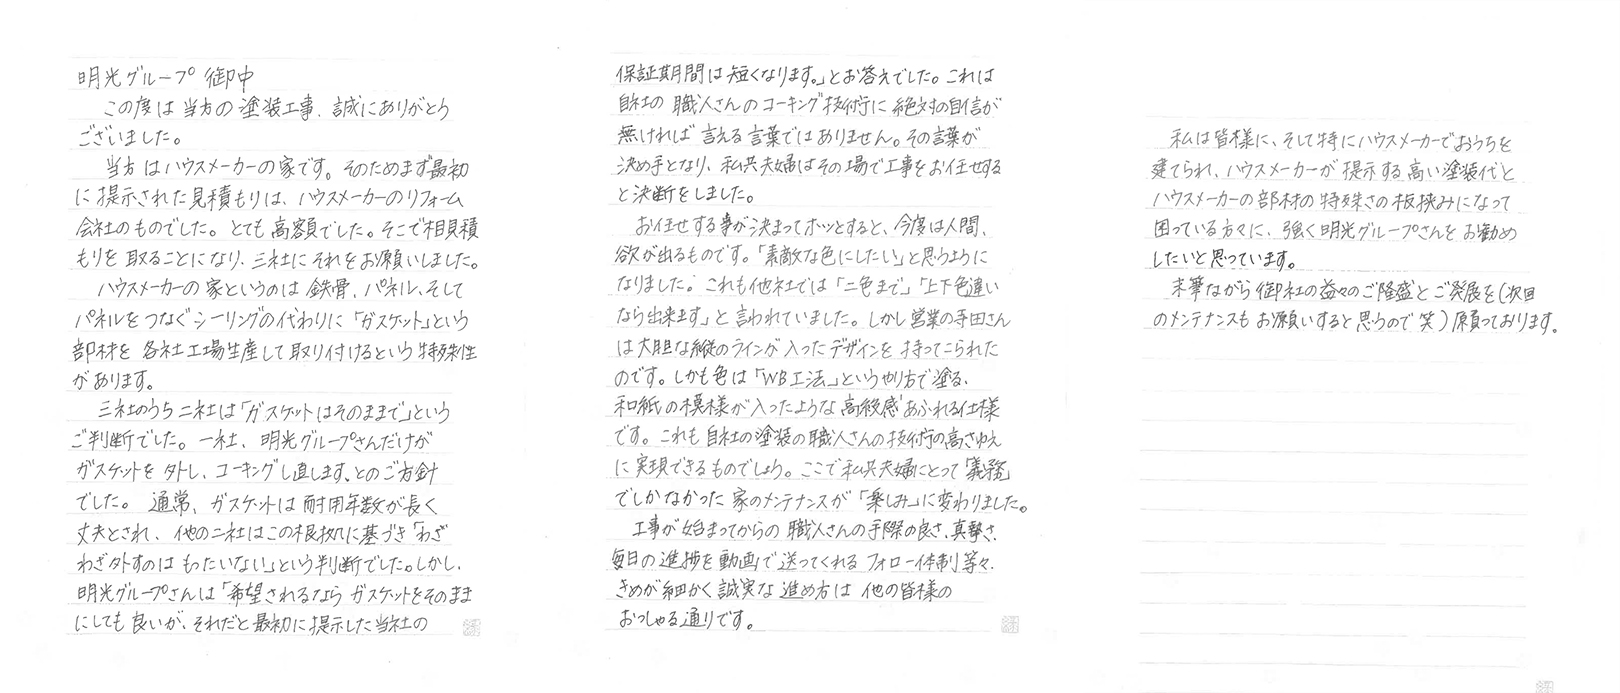 明光グループ 御中
この度は当方の塗装工事、誠にありがとう
ございました。
当方はハウスメーカーの家です。そのためまず最初
に提示された見積もりは、ハウスメーカーのリフォーム
会社のものでした。とても高額でした。そこで相見積
もりを取ることになり、三社にそれをお願いしました。
ハウスメーカーの家というのは鉄骨、パネル、そして
パネルをつなぐシーリングの代わりに「ガスケット」という
部材を各社工場生産して取り付けるという特殊性
があります。
三社のうち二社は「ガスケットはそのままで」という
ご判断でした。一社、明光グループさんだけが
ガスケットを外し、コーキングし直します、とのご方針
でした。通常、ガスケットは耐用年数が長く
丈夫とされ、他の二社はこの根拠に基づき「わざ
わざ外すのはもったいない」という判断でした。しかし、
明光グループさんは「希望されるならガスケットをそのまま
にしても良いが、それだと最初に提示した当社の
保証期間は短くなります。」とお答えでした。これは
自社の職人さんのコーキング技術に絶対の自信が
無ければ言える言葉ではありません。その言葉が
決め手となり、私共夫婦はその場で工事をお任せする
と決断をしました。
お任せする事が決まってホッとすると、今度は人間、
欲が出るものです。「素敵な色にしたい」と思うように
なりました。これも他社では「二色まで」「上下色違い
なら出来ます」と言われていました。しかし営業の手田さん
は大胆な縦のラインが入ったデザインを持ってこられた
のです。しかも色は「WB工法」というやり方で塗る、
和紙の模様が入ったような高級感あふれる仕様
です。これも自社の塗装の職人さんの技術の高さゆえ
に実現できるものでしょう。ここで私共夫婦にとって「義務」
でしかなかった家のメンテナンスが「楽しみ」に変わりました。
工事が始まってからの職人さんの手際の良さ、真摯さ、
毎日の進捗を動画で送ってくれるフォロー体制等々、
きめが細かく誠実な進め方は他の皆様の
おっしゃる通りです。
私は皆様に、そして特にハウスメーカーでおうちを
建てられ、ハウスメーカーが提示する高い塗装代と
ハウスメーカーの部材の特殊さの板挟みになって
困っている方々に、強く明光グループさんをお勧め
したいと思っています。
末筆ながら御社の益々のご隆盛とご発展を(次回
のメンテナンスもお願いすると思うので笑)願っております。